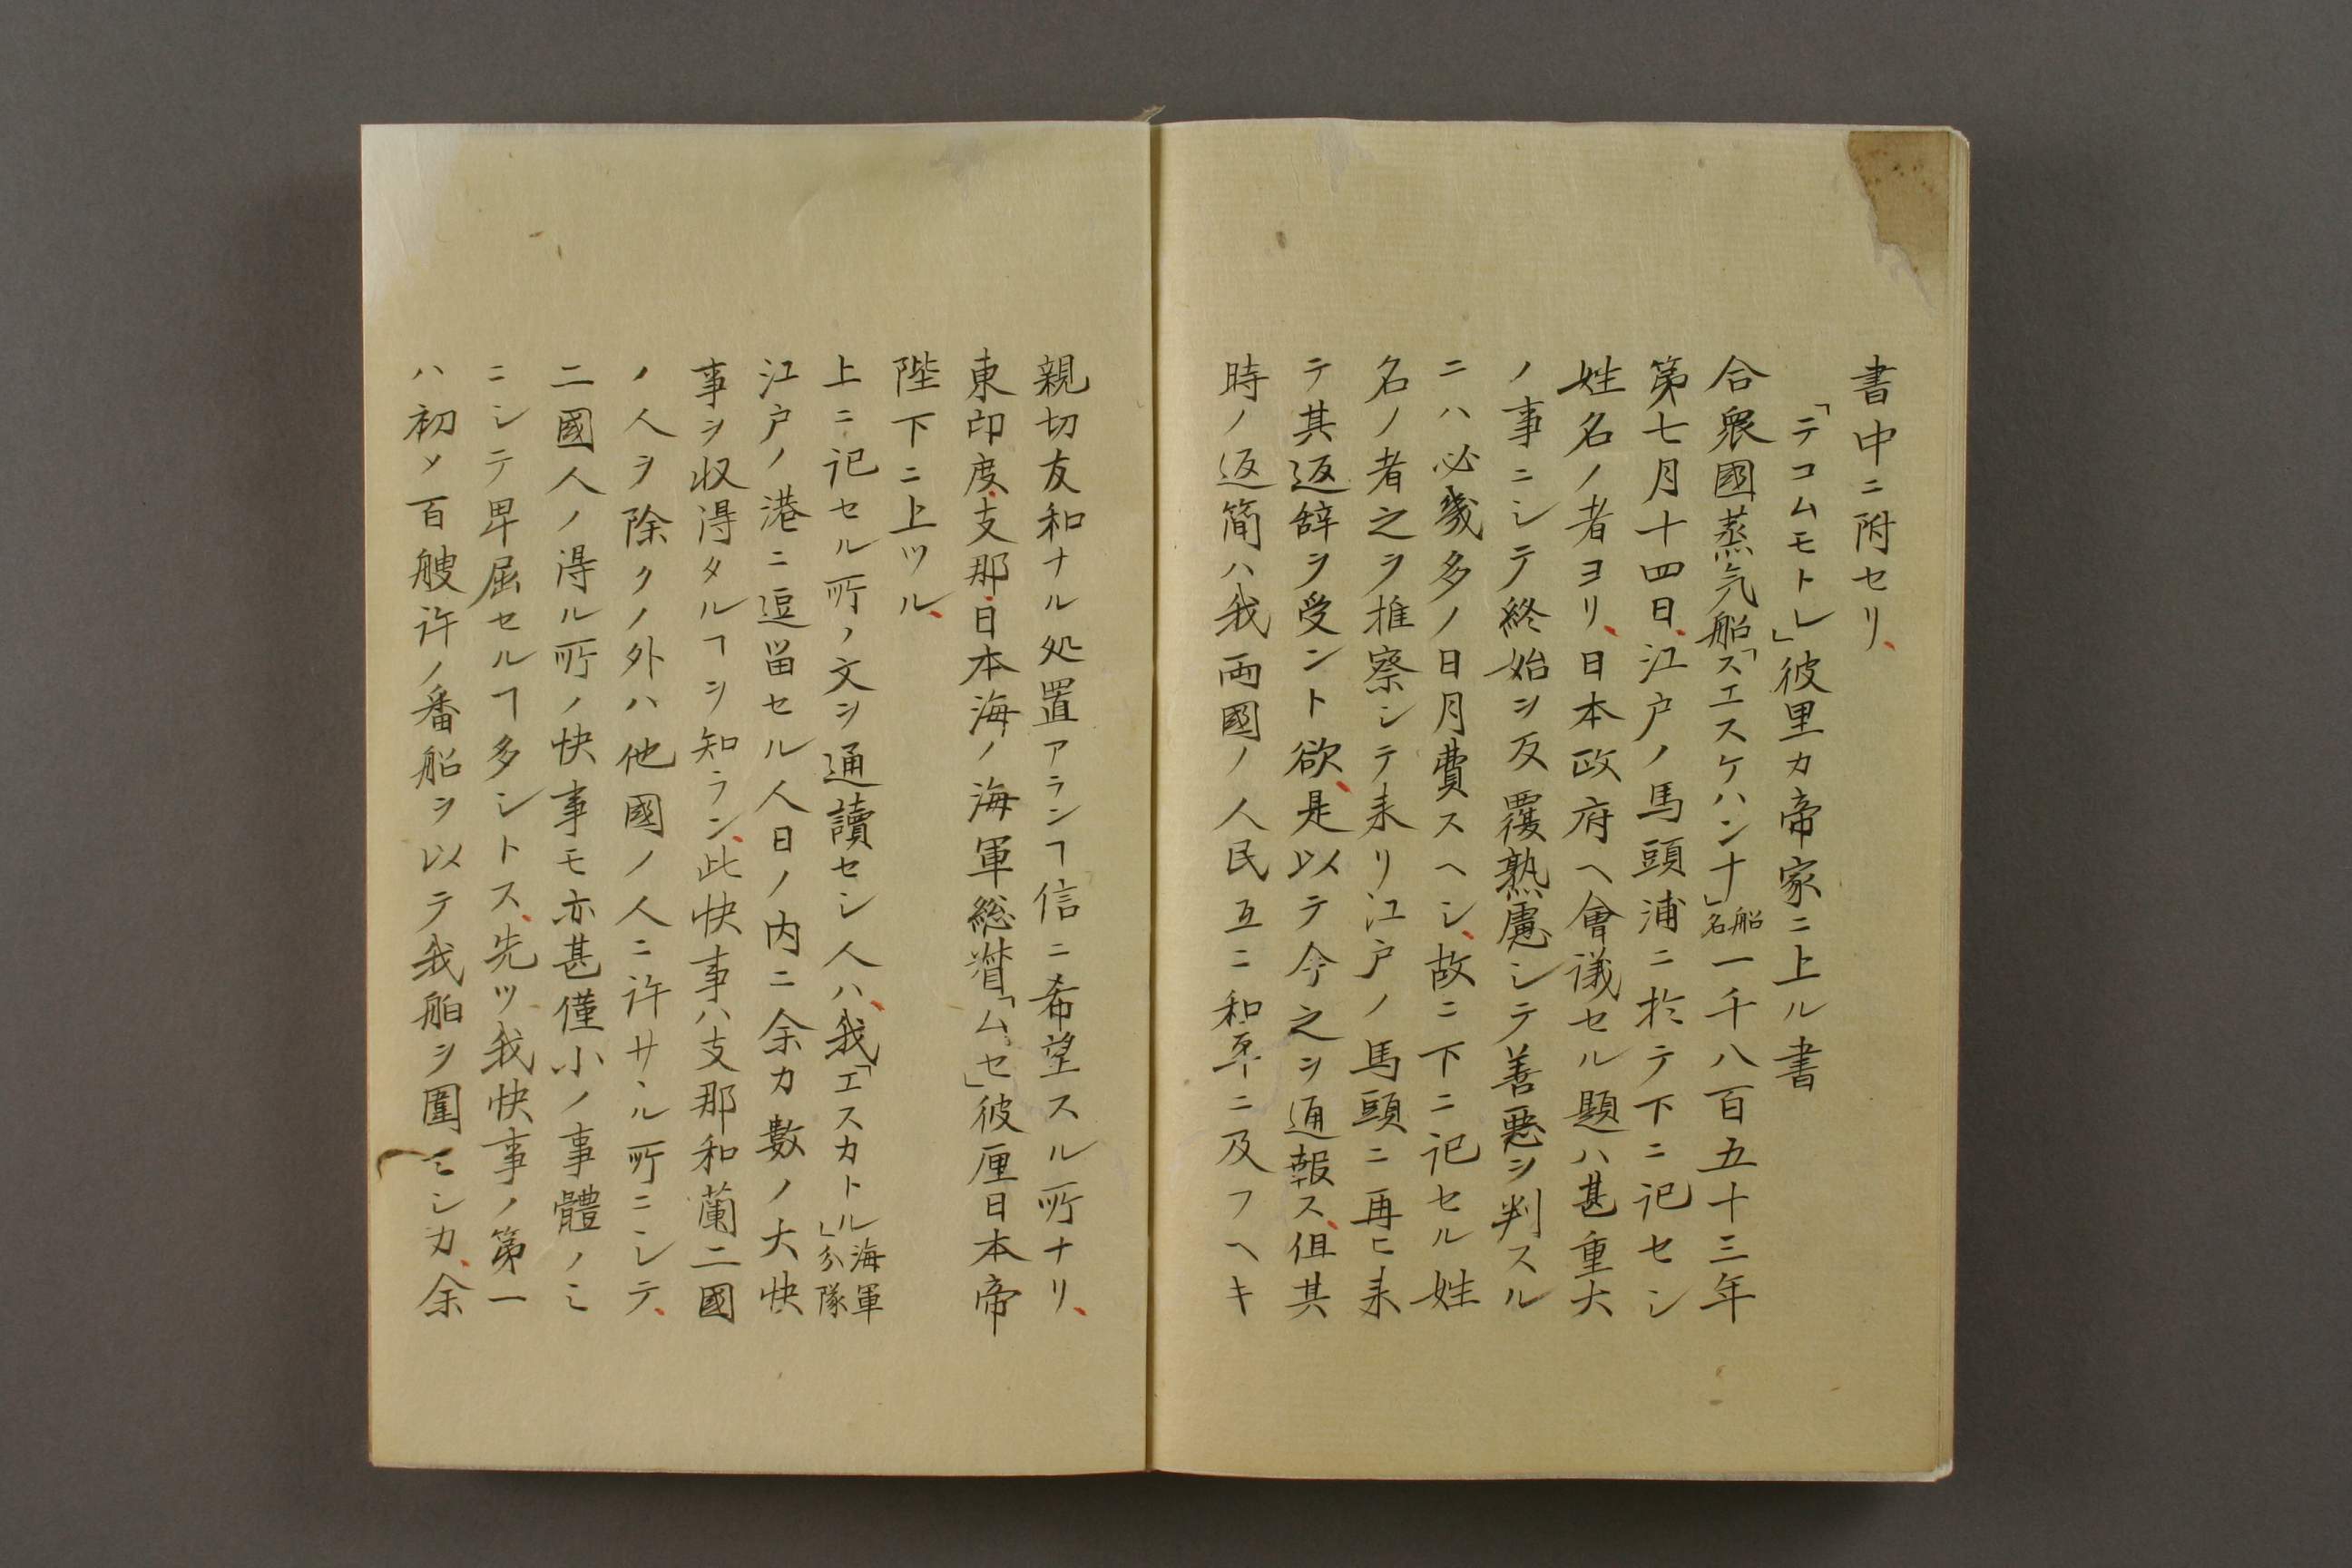 書中ニ附セリ、
「テコムモトレ」彼里カ帝家ニ上ル書
合衆國蒸気船「スエスケハンナ」船名一千八百五十三年
第七月十四日、江戸ノ馬頭浦ニ於テ下ニ記セシ
姓名ノ者ヨリ、日本政府ヘ會議セル題ハ甚重大
ノ事ニシテ終始ヲ反覆熟慮シテ善悪ヲ判スル
ニハ必幾多ノ日月費スヘシ、故ニ下ニ記セル姓
名ノ者之ヲ推察シテ来リ江戸ノ馬頭ニ再ヒ来
テ其返辞ヲ受ント欲、是以テ今之ヲ通報ス、但其
時ノ返簡ハ我両國ノ人民互ニ和平ニ及フヘキ
親切友和ナル処置アランヿ信ニ希望スル所ナリ、
東印度、支那、日本海ノ海軍総督「ム、セ」彼厘日本帝
陛下ニ上ツル、
上ニ記セル所ノ文ヲ通讀セシ人ハ、我「エスカトル」海軍分隊
江戸ノ港ニ逗畄セル人日ノ内ニ余カ數ノ大快
事ヲ収得タルヿヲ知ラン、此快事ハ支那和蘭二國
ノ人ヲ除クノ外ハ他國ノ人ニ許サヽル所ニシテ、
二國人ノ得ル所ノ快事モ亦甚僅小ノ事體ノミ
ニシテ卑屈セルヿ多シトス、先ツ我快事ノ第一
ハ初メ百艘許ノ番船ヲ以テ我舶ヲ圍ミシカ、余